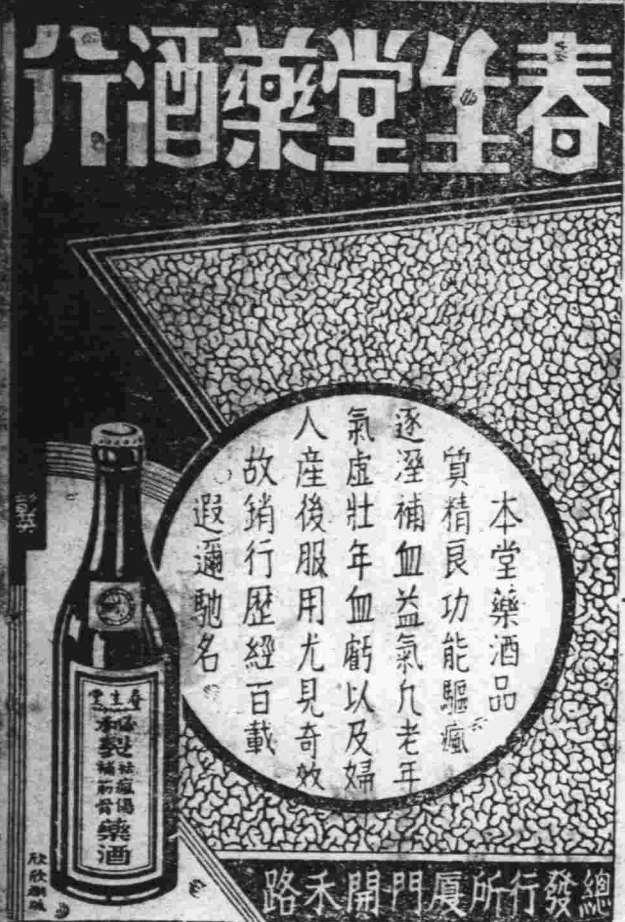 春生堂藥酒行
本堂藥酒品
質精良功能驅瘋
逐溼補血益氣凢老年
氣虛壯年血虧以及婦
人產後服用尤見奇效
故銷行歷經百載
遐邇馳名
春生堂
祛瘋傷
補筋骨
藥酒
總發行所廈門開禾路